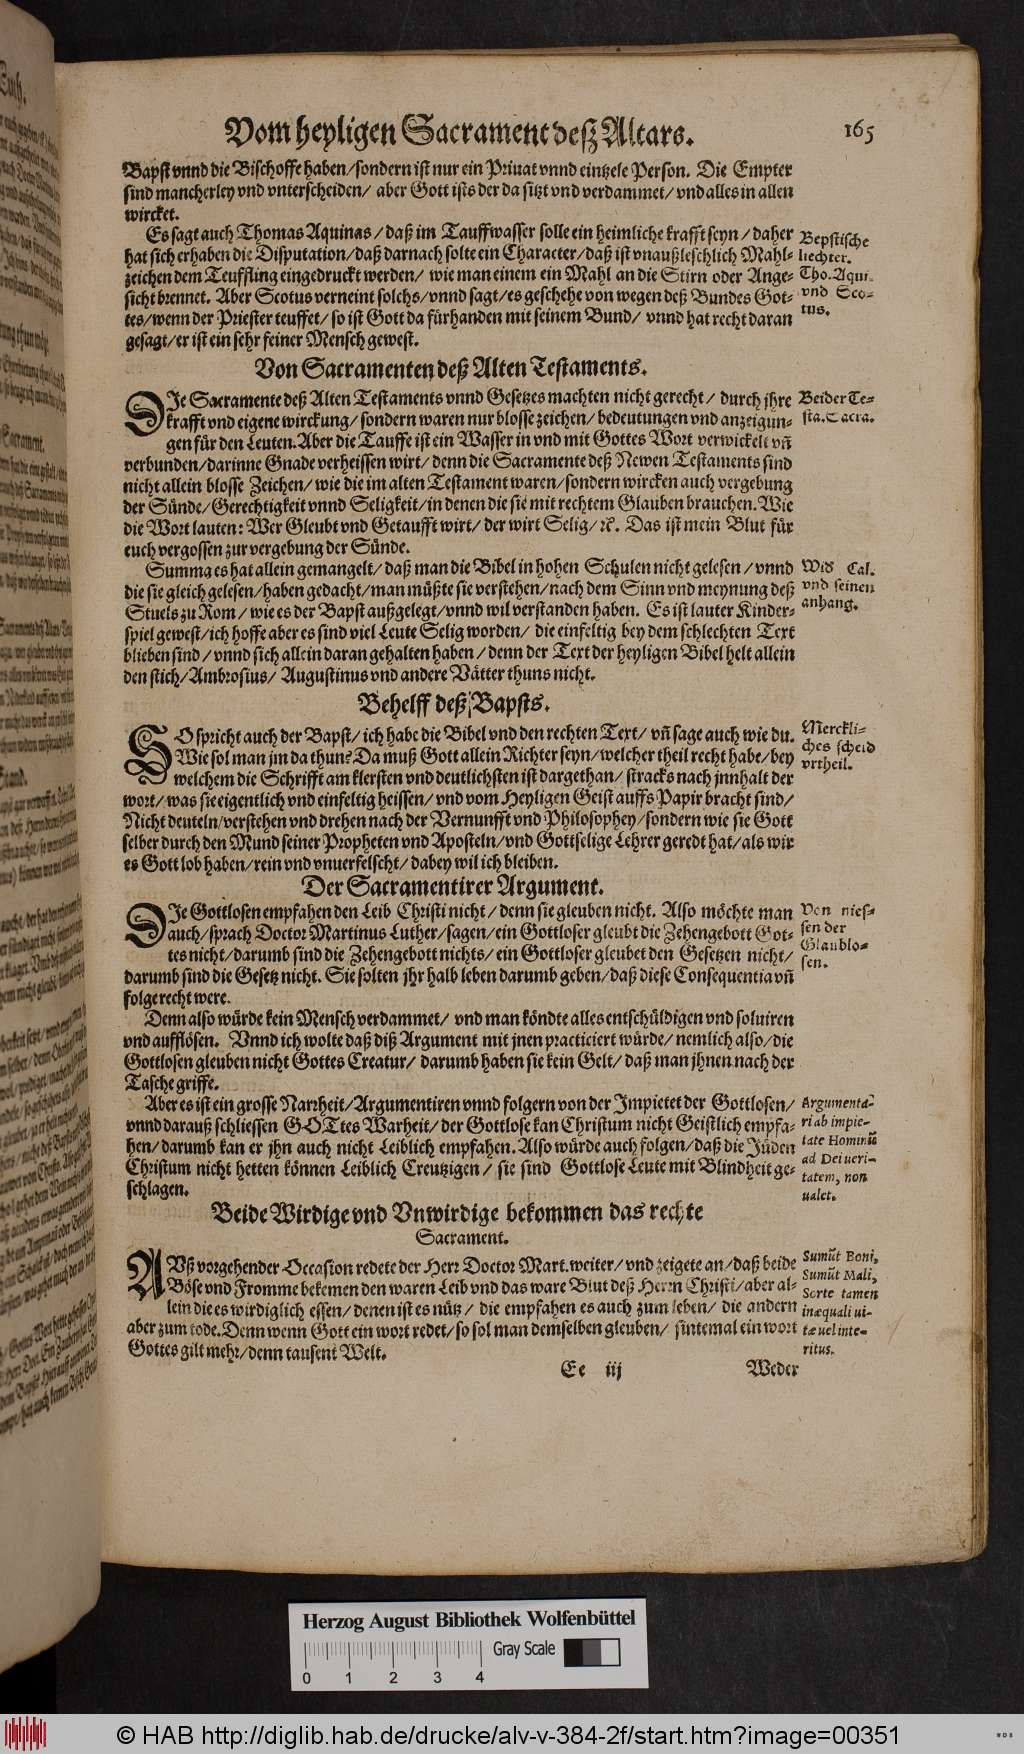 Vom heyligen Sacrament deß Altars. 165
Bapst vnnd die Bischoffe haben/sondern ist nur ein Priuat vnnd eintzele Person. Die Empter
sind mancherley vnd vnterscheiden/ aber Gott ists der da sitzt vnd verdammet/ vnd alles in allen
wircket.
Es sagt auch Thomas Aquinas/ daß im Tauffwasser solle ein heimliche krafft seyn/ daher
hat sich erhaben die Disputation/daß darnach solte ein Character/daß ist vnaußleschlich Mahl-
zeichen dem Teuffling eingedruckt werden/ wie man einem ein Mahl an die Stirn oder Ange-
sicht brennet. Aber Scotus verneint solchs/vnnd sagt/es geschehe von wegen deß Bundes Got-
tes/wenn der Priester teuffet/so ist Gott da fürhanden mit seinem Bund/ vnnd hat recht daran
gesagt/er ist ein sehr feiner Mensch gewest.
Bepstische
liechter.
Tho. Aqui.
vnd Sco-
tus.
Von Sacramenten deß Alten Testaments.
DIe Sacramente deß Alten Testaments vnnd Gesetzes machten nicht gerecht/ durch jhre
krafft vnd eigene wirckung/sondern waren nur blosse zeichen/bedeutungen vnd anzeigun-
gen für den Leuten. Aber die Tauffe ist ein Wasser in vnd mit Gottes Wort verwickelt vñ
verbunden/darinne Gnade verheissen wirt/denn die Sacramente deß Newen Testaments sind
nicht allein blosse Zeichen/wie die im alten Testament waren/sondern wircken auch vergebung
der Sünde/Gerechtigkeit vnnd Seligkeit/in denen die sie mit rechtem Glauben brauchen. Wie
die Wort lauten: Wer Gleubt vnd Getaufft wirt/ der wirt Selig/ ꝛc. Das ist mein Blut für
euch vergossen zur vergebung der Sünde.
Beider Te-
sta. Sacra.
Summa es hat allein gemangelt/daß man die Bibel in hohen Schulen nicht gelesen/vnnd
die sie gleich gelesen/haben gedacht/man müßte sie verstehen/nach dem Sinn vnd meynung deß
Stuels zu Rom/ wie es der Bapst außgelegt/vnnd wil verstanden haben. Es ist lauter Kinder-
spiel gewest/ich hoffe aber es sind viel Leute Selig worden/ die einfeltig bey dem schlechten Text
blieben sind/vnnd sich allein daran gehalten haben/denn der Text der heyligen Bibel helt allein
den stich/Ambrosius/ Augustinus vnd andere Vätter thuns nicht.
Wid. Cal.
vnd seinen
anhang.
Behelff deß Bapsts.
SO spricht auch der Bapst/ich habe die Bibel vnd den rechten Text/vñ sage auch wie du.
Wie sol man jm da thun? Da muß Gott allein Richter seyn/welcher theil recht habe/bey
welchem die Schrifft am klersten vnd deutlichsten ist dargethan/stracks nach jnnhalt der
wort/was sie eigentlich vnd einfeltig heissen/vnd vom Heyligen Geist auffs Papir bracht sind/
Nicht deuteln/verstehen vnd drehen nach der Vernunfft vnd Philosophey/sondern wie sie Gott
selber durch den Mund seiner Propheten vnd Aposteln/vnd Gottselige Lehrer geredt hat/als wir
es Gott lob haben/rein vnd vnuerfelscht/dabey wil ich bleiben.
Merckli-
ches scheid
vrtheil.
Der Sacramentirer Argument.
DIe Gottlosen empfahen den Leib Christi nicht/denn sie gleuben nicht. Also möchte man
auch/sprach Doctor Martinus Luther/sagen/ein Gottloser gleubt die Zehengebott Got-
tes nicht/darumb sind die Zehengebott nichts/ein Gottloser gleubet den Gesetzen nicht/
darumb sind die Gesetz nicht. Sie solten jhr halb leben darumb geben/daß diese Consequentia vñ
folge recht were.
Von nies-
sen der
Glaublo-
sen.
Denn also würde kein Mensch verdammet/ vnd man köndte alles entschüldigen vnd soluiren
vnd aufflösen. Vnnd ich wolte daß diß Argument mit jnen practiciert würde/nemlich also/die
Gottlosen gleuben nicht Gottes Creatur/ darumb haben sie kein Gelt/ daß man jhnen nach der
Tasche griffe.
Aber es ist ein grosse Narrheit/Argumentiren vnnd folgern von der Impietet der Gottlosen/
vnnd darauß schliessen GOTtes Warheit/ der Gottlose kan Christum nicht Geistlich empfa-
hen/darumb kan er jhn auch nicht Leiblich empfahen. Also würde auch folgen/daß die Jüden
Christum nicht hetten können Leiblich Creutzigen/ sie sind Gottlose Leute mit Blindheit ge-
schlagen.
Argumenta-
ri ab impie-
tate Hominũ
ad Dei veri-
tatem, non
ualet.
Beide Wirdige vnd Vnwirdige bekommen das rechte
Sacrament.
AUß vorgehender Occasion redete der Herr Doctor Mart. weiter/vnd zeigete an/daß beide
Böse vnd Fromme bekemen den waren Leib vnd das ware Blut deß Herrn Christi/aber al-
lein die es wirdiglich essen/denen ist es nütz/ die empfahen es auch zum leben/ die andern
aber zum tode. Denn wenn Gott ein wort redet/so sol man demselben gleuben/ sintemal ein wort
Gottes gilt mehr/denn tausent Welt.
Sumũt Boni,
Sumũt Mali,
Sorte tamen
inæquali ui-
tæ uel inte-
ritus.
Ee iij Weder
Herzog August Bibliothek Wolfenbüttel
Gray Scale
0 1 2 3 4
© HAB http://diglib.hab.de/drucke/alv-v-384-2f/start.htm?image=00351